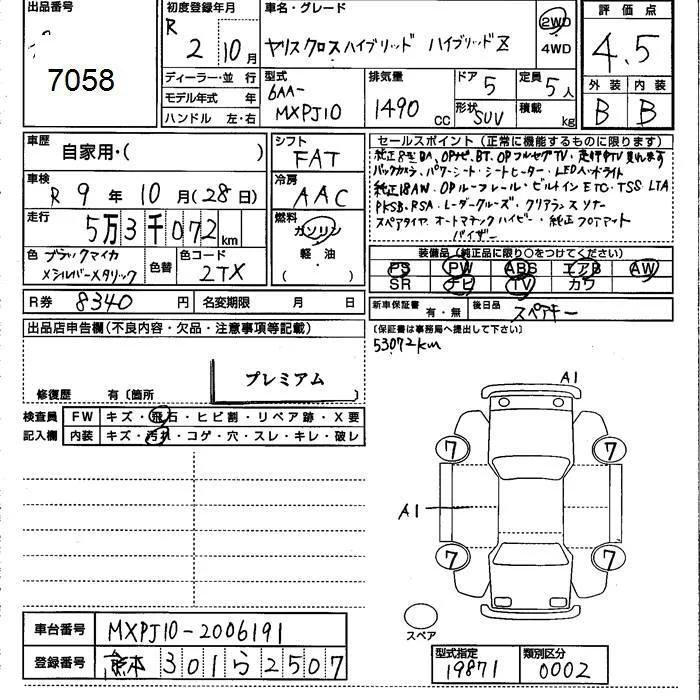 出品番号
7058
初度登録年月
R 2 10月
車名・グレード
ヤリスクロスハイブリッド ハイブリッドZ
2WD
4WD
評価点
4.5
外装 内装
B B
ディーラー・並行
モデル年式 年
ハンドル 左・右
型式
6AA-
MXPJ10
排気量
1490 cc
ドア 5
形状 SUV
定員 5人
積載 kg
車歴
自家用・( )
車検
R 9年 10月(28日)
走行
5万3千072km
色 ブラックマイカ
×シルバーメタリック
色替
色コード
2TX
シフト
FAT
冷房
AAC
燃料
ガソリン
軽油
( )
セールスポイント(正常に機能するものに限ります)
純正8型DA、OPナビ、BT、OPフルセグTV、走行中TV見れます
バックカメラ、パワーシート・シートヒーター・LEDヘッドライト
純正18AW、OPルーフレール・ビルトインETC・TSS LTA
PKSB、RSA・レーダークルーズ・クリアランスソナー
スペアタイヤ オートマチックハイビーム・純正フロアマット
バイザー
装備品(純正品に限り○をつけてください)
PS PW ABS エアB AW
SR ナビ TV カワ
R券 8340円
名変期限 月 日
新車保証書 有・無
後日品 スペアキー
(保証書は事務局へ提出して下さい)
53072km
出品店申告欄(不良内容・欠品・注意事項等記載)
プレミアム
修復歴 有〔箇所
検査員
記入欄
FW キズ・飛石・ヒビ割・リペア跡・X要
内装 キズ・汚れ・コゲ・穴・スレ・キレ・破レ
A1
7 7
A1
7 7
スペア
車台番号 MXPJ10-2006191
登録番号 熊本 301 ら 2507
型式指定
19871
類別区分
0002